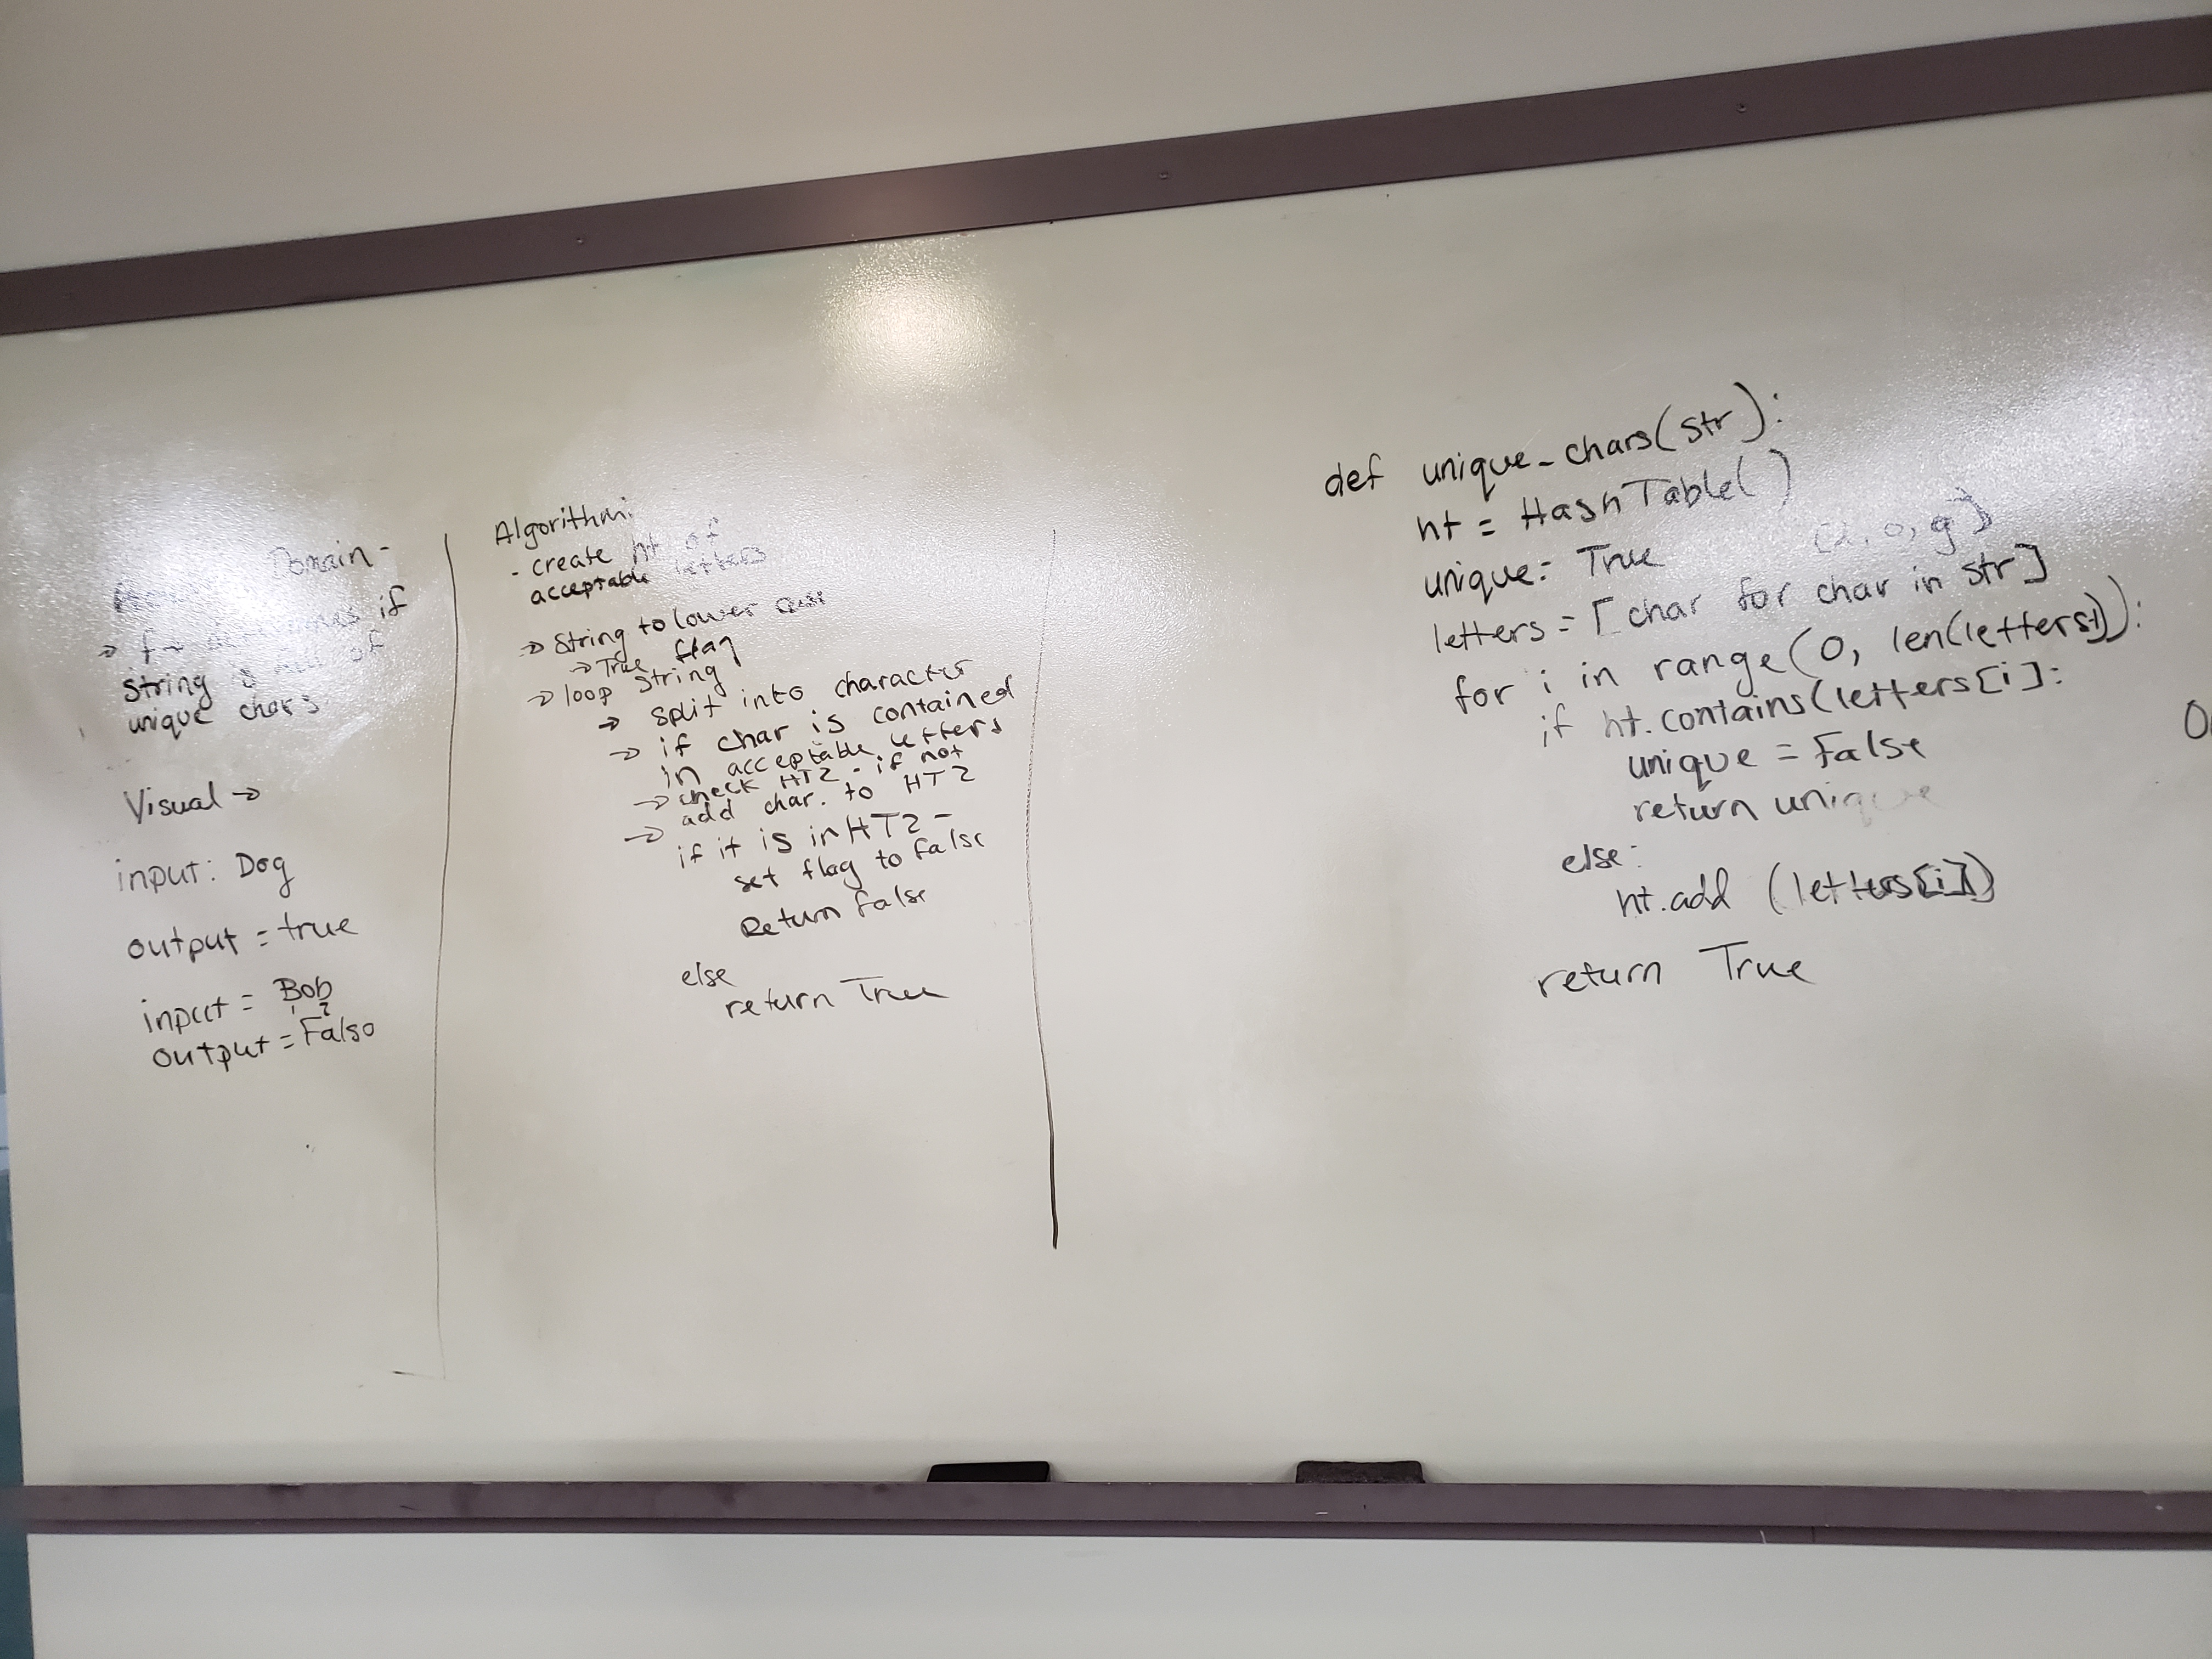 Domain -
→ f→ if
string is all of
unique chars.
Visual →
input: Dog
output = true
input = Bob
1 2
output = False
Algorithm:
- create ht of
acceptable letters
→ String to lower case
→ True flag
→ loop string
→ split into character
→ if char is contained
in acceptable letters
→ check HT2 - if not
add char. to HT2
→ if it is in HT2 -
set flag to false
Return false
else
return True
def unique_chars(str):
ht = HashTable()
unique = True
[d, o, g]
letters = [char for char in str]
for i in range(0, len(letters)):
if ht.contains(letters[i]:
unique = False
return unique
else:
ht.add (letters[i])
return True
O